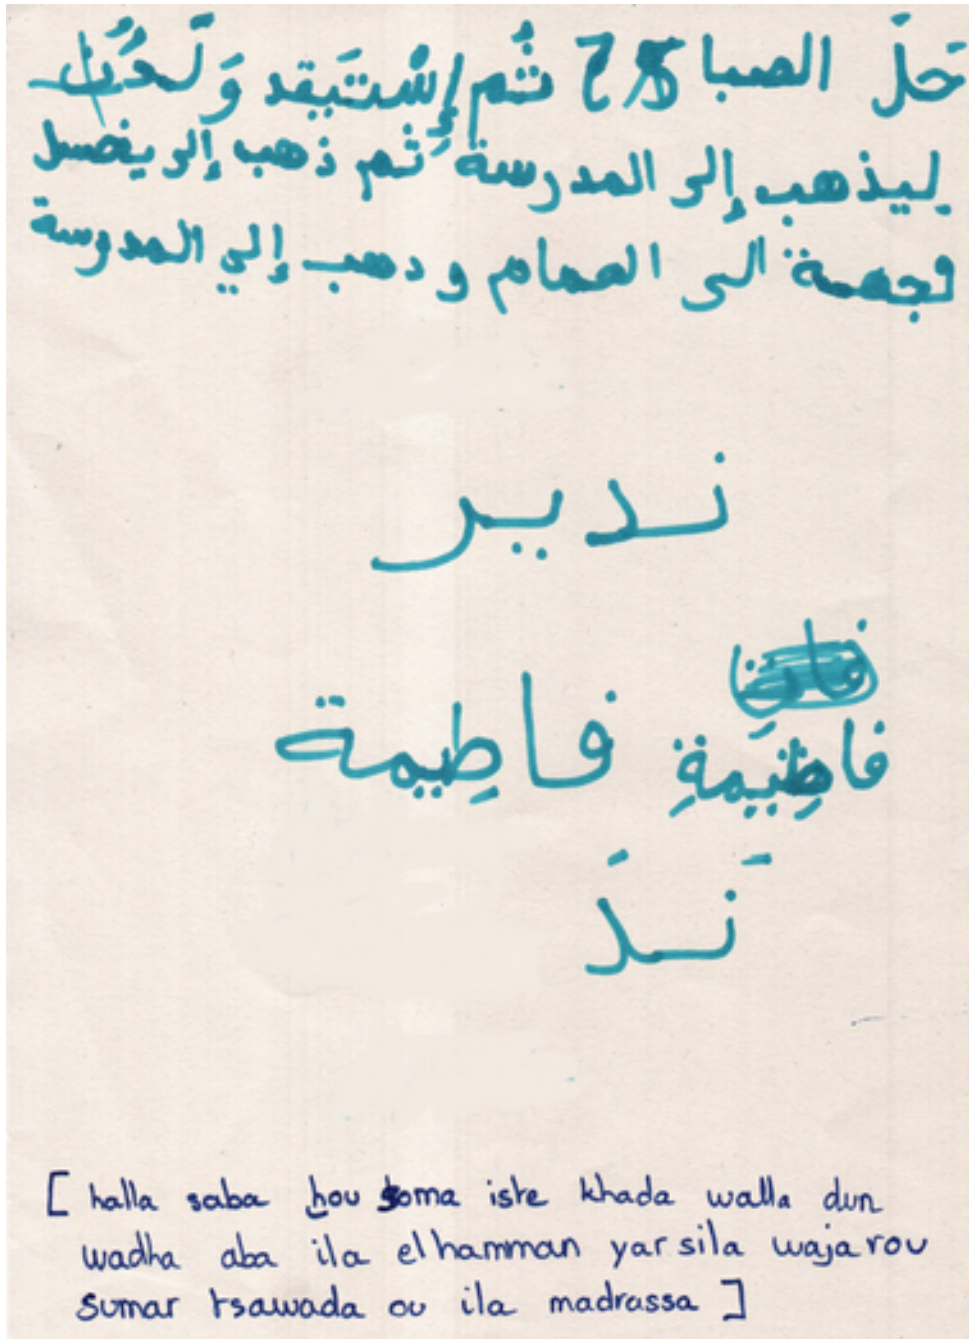 حَلّ الصبا ح ثُم إِسْتَيقد وَلَدُن
ليذهب إلى المدرسة ثم ذهب إلى يغسل
وجهة الى الحمام و دهب إلي المدرسة
ندير
فاطِيمةِ فاطِيمة
نَدَ
[ halla saba hou soma iste khada walla dun
wadha aba ila elhamman yarsila wajarou
sumar tsawada ou ila madrassa ]